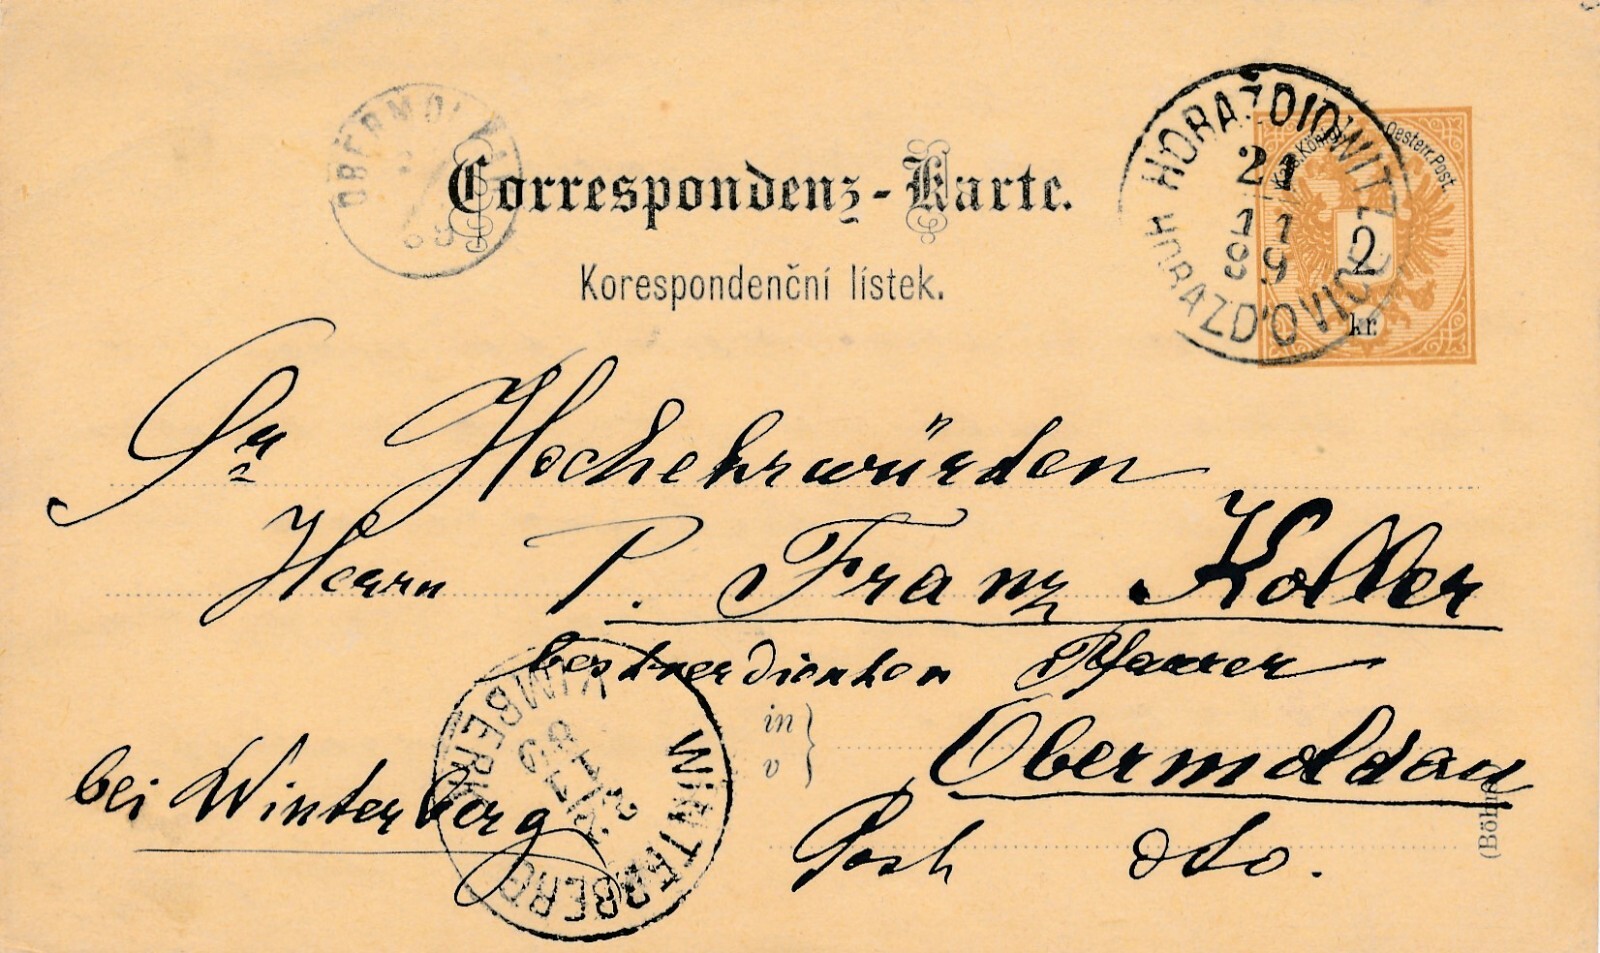 Correspondenz-Karte.
Korespondenční lístek.
OBERMOLDAU
89
HORAŽDIOWITZ
21
11
89
HORAZĎOVICE
Kais. Königl. Oesterr. Post.
2
kr.
Sr Hochehrwürden
Herrn P. Franz Koller
bestverdienten Pfarrer
in
v
Obermoldau
bei Winterberg
Post dto.
WINTERBERG
VIMBERK
89
(Böhm.